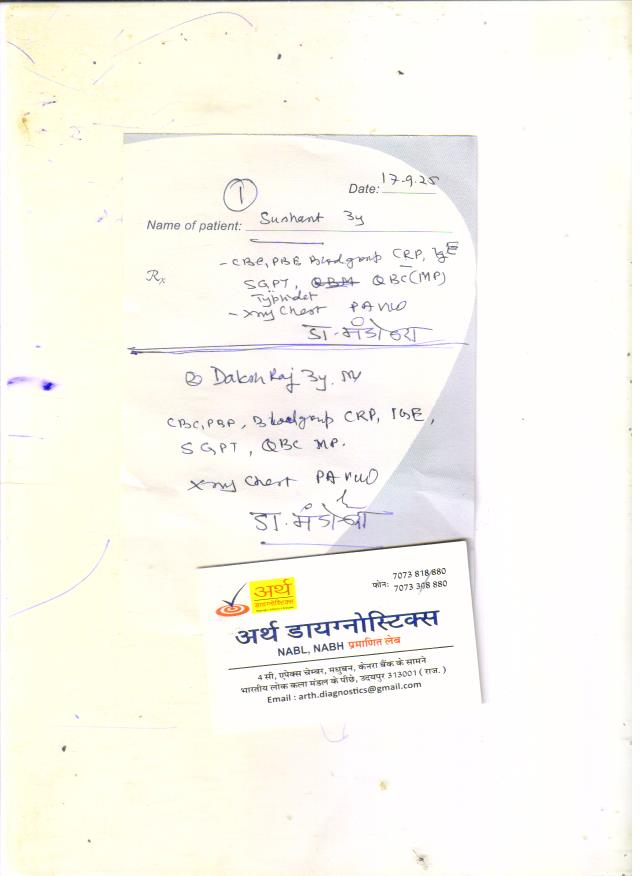 1
Date: 17-9-25
Name of patient: Sushant 3y
Rx
- CBC, PBF Blood group CRP, IgE
SGPT, QBC (MP)
Typhidot
- Xray Chest PA view
डा. मंडोवरा
② Daksh Raj 3y. M
CBC, PBF, Blood group CRP, IGE,
SGPT, QBC MP.
Xray Chest PA view
डा. मंडोवरा
अर्थ
डायग्नोस्टिक्स
फोन: 7073 818 880
7073 308 880
अर्थ डायग्नोस्टिक्स
NABL, NABH प्रमाणित लेब
4 सी, एपेक्स चेम्बर, मधुबन, केनरा बैंक के सामने
भारतीय लोक कला मंडल के पीछे, उदयपुर 313001 ( राज. )
Email : arth.diagnostics@gmail.com